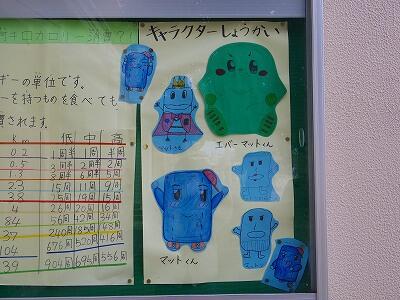 キロカロリー消費?!
ギーの単位です。
ーを持つものを食べても
費されます。
Km 低 中 高
0.2 1周半 1周 半周
0.5 3周半 2周半 2周
1.3 8周 6周 5周
2.3 15周 11周 9周
3.8 25周 19周 15周
4 26周 20周 16周
84 56周 42周 34周
37 240周 185周 148周
104 676周 520周 416周
139 904周 695周 556周
キャラクターしょうかい
エバーマットくん
マットくん